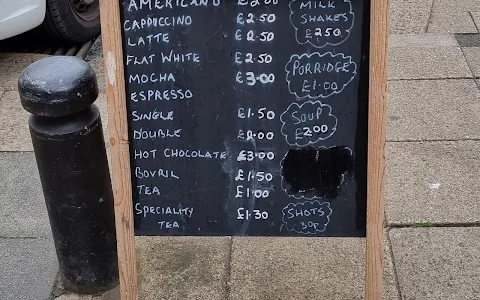 AMERICANO £2.00
CAPPUCCINO £2.50
LATTE £2.50
FLAT WHITE £2.50
MOCHA £3.00
ESPRESSO
SINGLE £1.50
DOUBLE £2.00
HOT CHOCOLATE £3.00
BOVRIL £1.50
TEA £1.00
SPECIALITY £1.30
TEA
MILK
SHAKES
£2.50
PORRIDGE
£1.00
SOUP
£2.00
SHOTS
30P